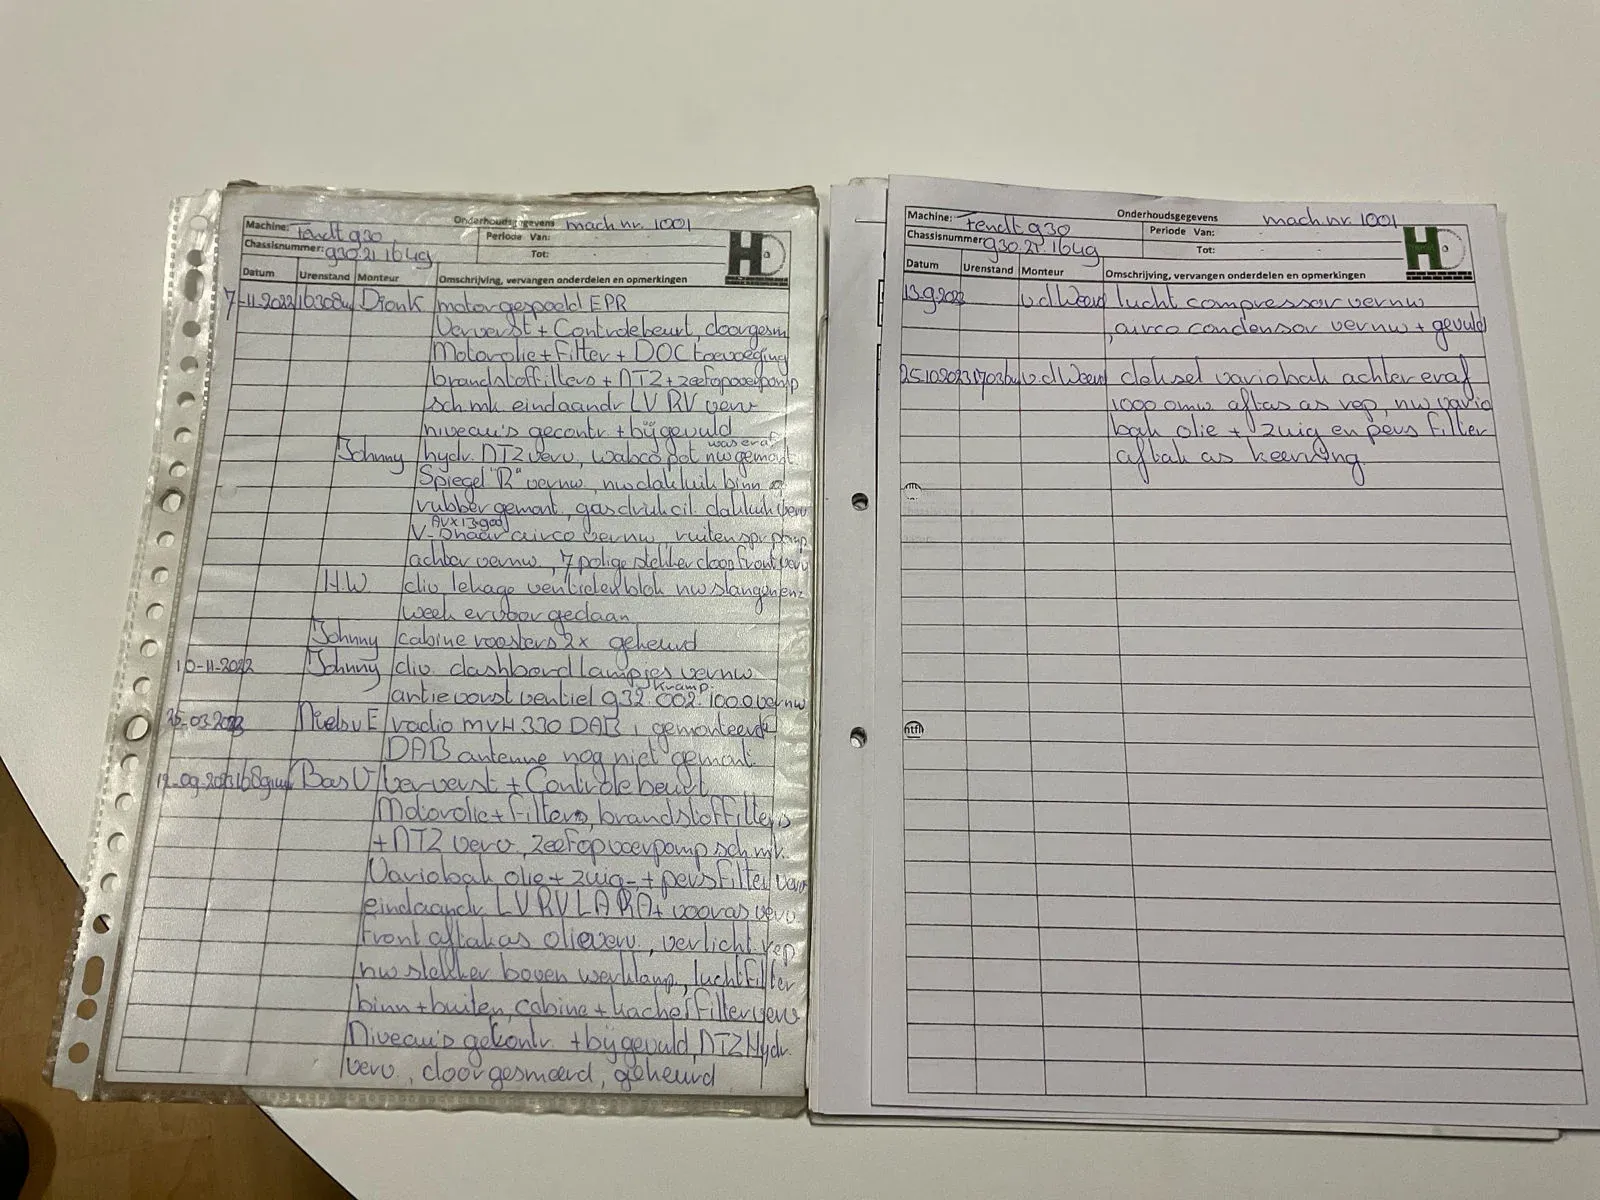 Onderhoudsgegevens mach.nr. 1001
Machine: Fendt 930
Periode Van: - -
Chassisnummer: 930.21.1649
Tot: - -
HD
Datum Urenstand Monteur Omschrijving, vervangen onderdelen en opmerkingen
7-11-2022 16308u Dionk motorgespoeld EPR
Ververst + Controlebeurt, doorgesm
Motorolie + Filter + DOC toevoeging
brandstoffilters + NTZ + zeefopvoerpomp
schmk. eindaandr LV RV verv
niveau's gecontr. + bijgevuld
was eraf
Johnny hydr. NTZ verv, wabco pot nw gemont.
Spiegel "R" vernw, nw dakluik binn
rubber gemont, gasdrukcil. dakluik verv
AVX13.900
V-Snaar airco vernw, ruitenspr pomp
achter vernw, 7 polige stekker doop front verv
H.W. div lekage ventielenblok nw slangen enz
week ervoor gedaan
Johnny cabine roosters 2x gekeurd
10-11-2022 Johnny div. dashbord lampjes vernw
Kramp
antievorst ventiel 932.002.100.0 vernw
25-03-2023 Niels v E radio MVH 330 DAB, gemonteerd
DAB antenne nog niet gemont.
12-09-2023 Bas V ververst + Controlebeurt
Motorolie + filters, brandstoffilters
+ NTZ verv, zeefopvoerpomp schmk.
Variobak olie + zuig- + persfilter verv
eindaandr. LV RV LA RA + vooras verv
Front aftakas olieverv., verlicht. rep
nw stekker boven werklamp, luchtfilter
binn + buiten, cabine + kachelfilter verv
Niveau's gekontr. + bijgevuld, NTZ Hydr.
verv., doorgesmeerd, gekeurd
Onderhoudsgegevens mach.nr. 1001
Machine: Fendt 930
Periode Van: - -
Chassisnummer 930.21.1649
Tot: - -
HD
Datum Urenstand Monteur Omschrijving, vervangen onderdelen en opmerkingen
13.9.2023 v.d Weerd lucht compressor vernw
airco condensor vernw + gevuld
25.10.2023 17036u v.d Weerd deksel variobak achter eraf
1000 omw aftas as rep, nw vario
bak olie + zuig en pers filter
aftak as keerring